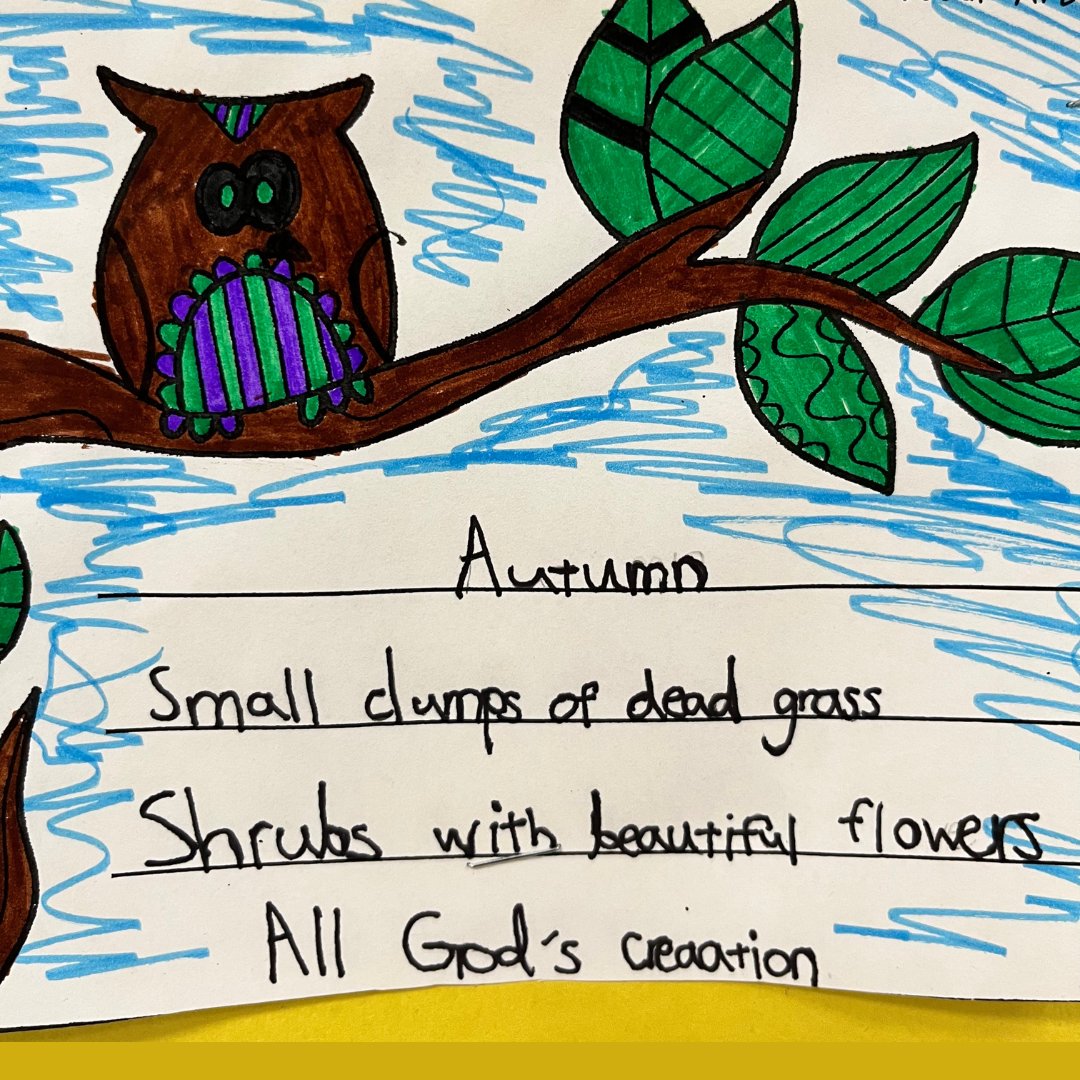 Autumn
Small clumps of dead grass
Shrubs with beautiful flowers
All God's creaation